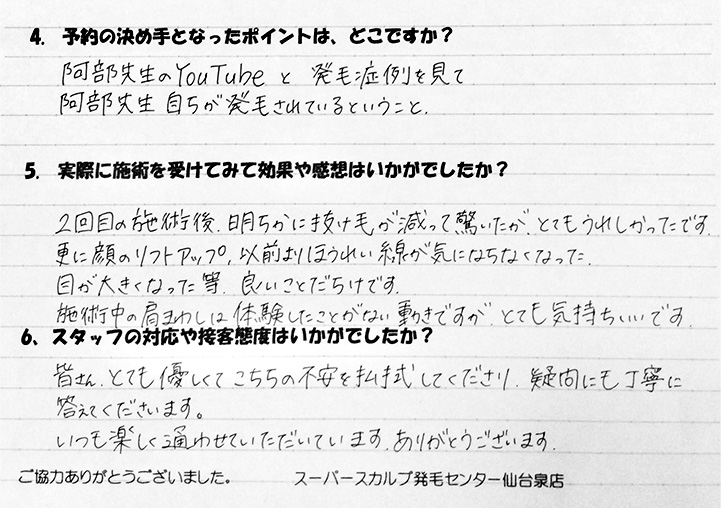 4. 予約の決め手となったポイントは、どこですか？
阿部先生のYouTubeと 発毛症例を見て
阿部先生自らが発毛されているということ.
5. 実際に施術を受けてみて効果や感想はいかがでしたか？
2回目の施術後、明らかに抜け毛が減って驚いたが、とてもうれしかったです.
更に顔のリフトアップ,以前よりほうれい線が気にならなくなった.
目が大きくなった等、良いことだらけです.
施術中の肩まわしは体験したことがない動きですが、とても気持ちいいです.
6、スタッフの対応や接客態度はいかがでしたか？
皆さん、とても優しくてこちらの不安を払拭してくださり、疑問にも丁寧に
答えてくださいます。
いつも楽しく通わせていただいています、ありがとうございます.
ご協力ありがとうございました。 スーパースカルプ発毛センター仙台泉店